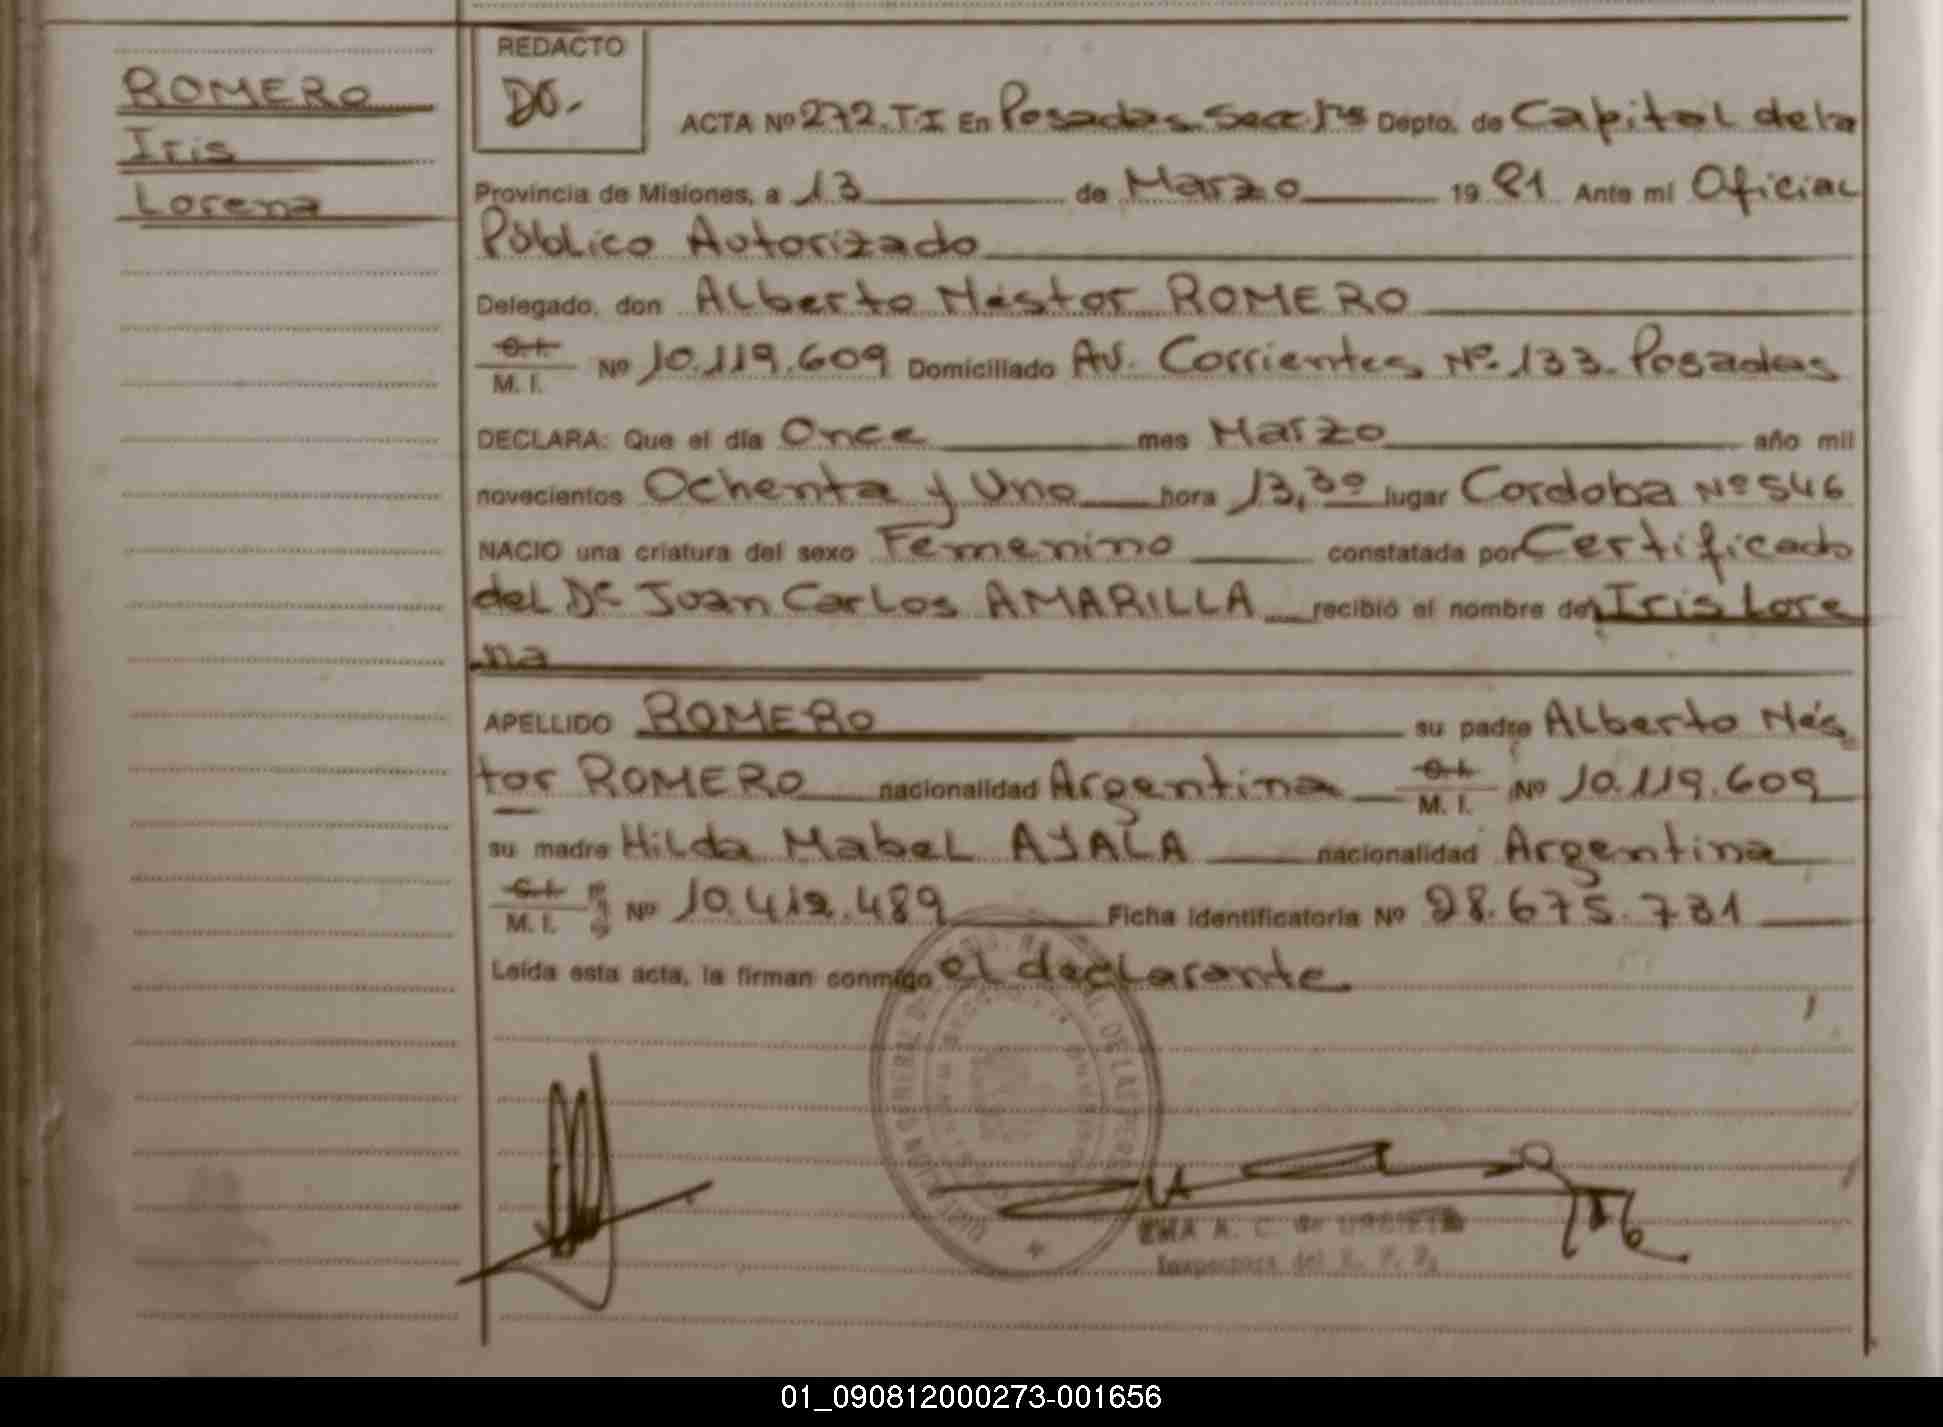 ROMERO
Iris
Lorena
REDACTO
ACTA Nº 272.T.I En Posadas Secc 1ra Depto. de Capital de la
Provincia de Misiones, a 13 de Marzo 1981 Ante mí Oficial
Público Autorizado
Delegado, don Alberto Néstor ROMERO
C.I.
M. I. Nº 10.119.609 Domiciliado Av. Corrientes Nº 133. Posadas
DECLARA: Que el día Once mes Marzo año mil
novecientos Ochenta y Uno hora 13,30 lugar Cordoba Nº 546
NACIO una criatura del sexo Femenino constatada por Certificado
del Dr Juan Carlos AMARILLA recibió el nombre de Iris Lore
na
APELLIDO ROMERO su padre Alberto Nés
tor ROMERO nacionalidad Argentina C.I. M. I. Nº 10.119.609
su madre Hilda Mabel AYALA nacionalidad Argentina
C.I.
M. I. Nº 10.412.489 Ficha identificatoria Nº 28.675.731
Leída esta acta, la firman conmigo el declarante
Inspectora del R. P. P.
01_090812000273-001656